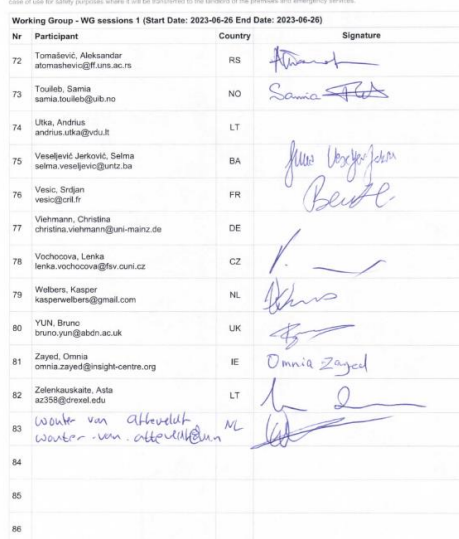 case of use for safety purposes where it will be transferred to the landlord of the premises and emergency services.
Working Group - WG sessions 1 (Start Date: 2023-06-26 End Date: 2023-06-26)
Nr Participant Country Signature
72 Tomašević, Aleksandar RS
atomashevic@ff.uns.ac.rs
73 Touileb, Samia NO Samia
samia.touileb@uib.no
74 Utka, Andrius LT
andrius.utka@vdu.lt
75 Veseljević Jerković, Selma BA
selma.veseljevic@untz.ba
76 Vesic, Srdjan FR
vesic@cril.fr
77 Viehmann, Christina DE
christina.viehmann@uni-mainz.de
78 Vochocova, Lenka CZ
lenka.vochocova@fsv.cuni.cz
79 Welbers, Kasper NL
kasperwelbers@gmail.com
80 YUN, Bruno UK
bruno.yun@abdn.ac.uk
81 Zayed, Omnia IE Omnia Zayed
omnia.zayed@insight-centre.org
82 Zelenkauskaite, Asta LT
az358@drexel.edu
83 Wouter van Atteveldt NL
84
85
86